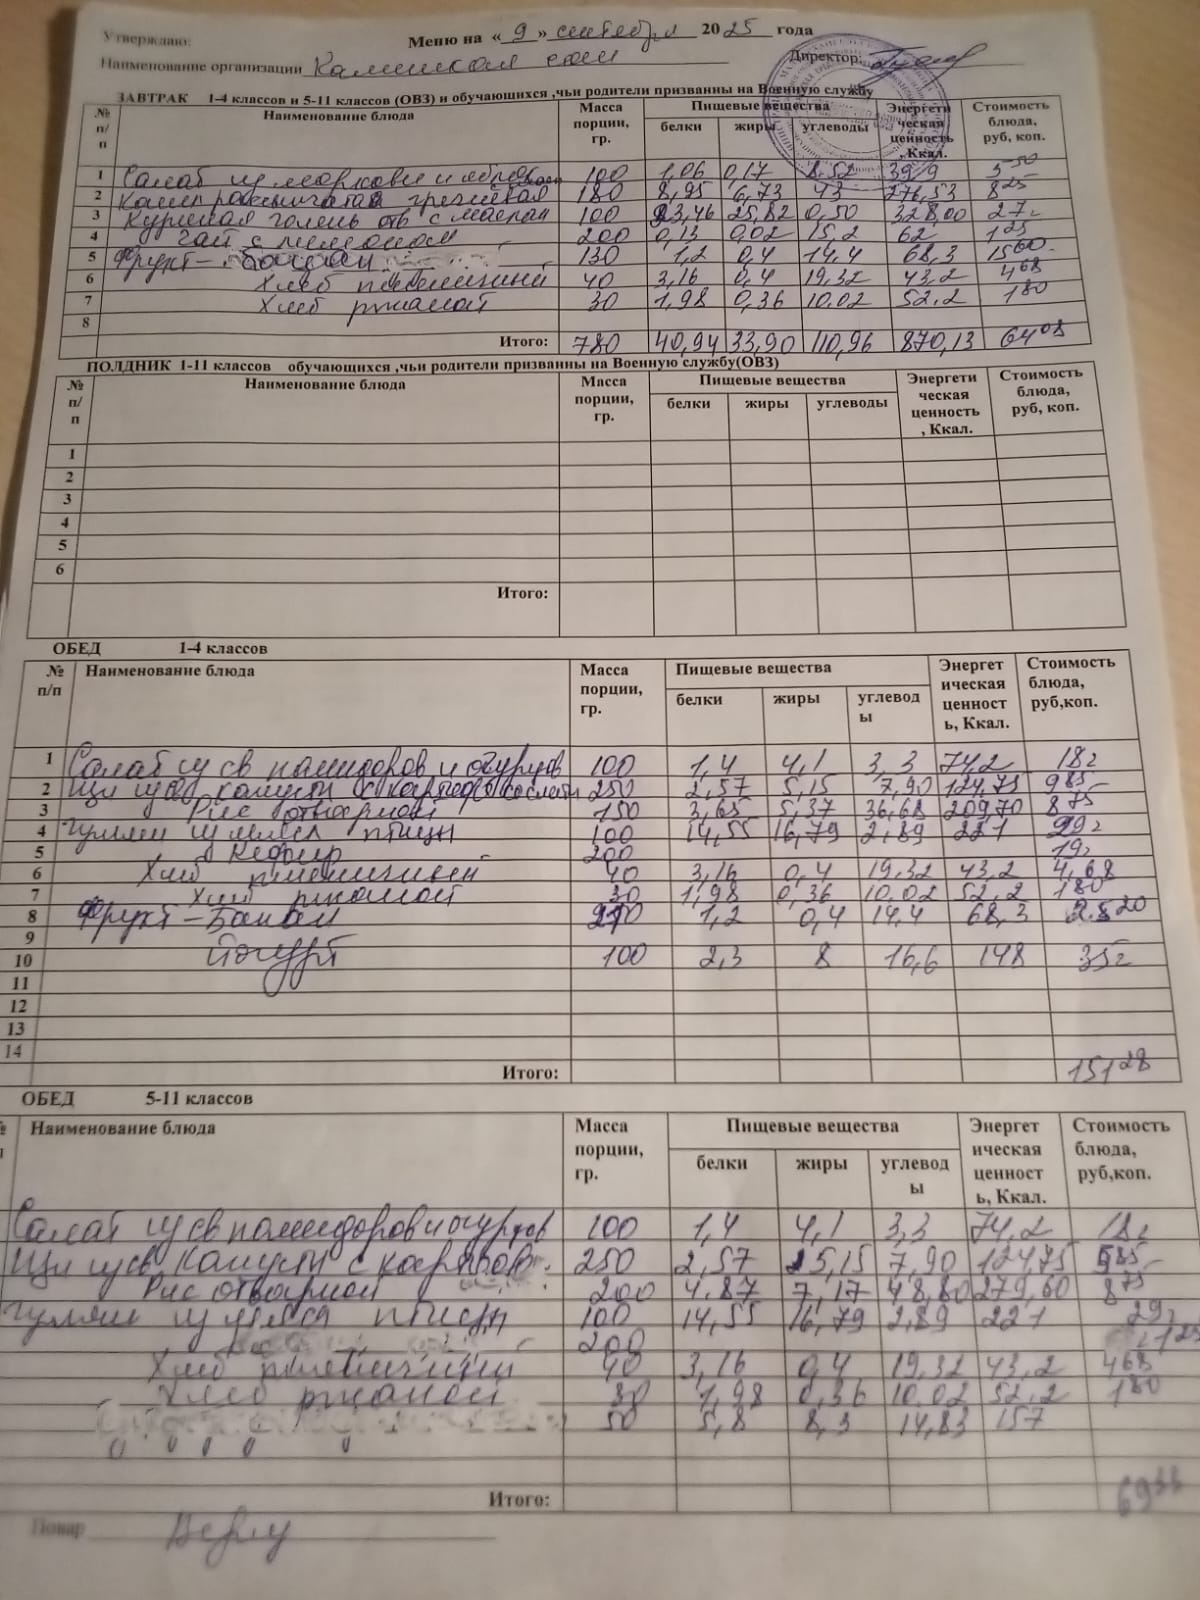 Утверждаю: Меню на « 9 » сентября 2025 года
Наименование организации Каминская сош Директор:
ЗАВТРАК 1-4 классов и 5-11 классов (ОВЗ) и обучающихся ,чьи родители призванны на Военную службу
№ п/п Наименование блюда Масса порции, гр. Пищевые вещества Энергети ческая ценность , Ккал. Стоимость блюда, руб, коп.
белки жиры углеводы
1 Салат из моркови и яблок 100 1,06 0,17 8,52 39,9 5-50
2 Каша рассыпчатая гречневая 180 8,95 6,73 43 276,53 8 25
3 Куриная голень отв с маслом 100 23,46 25,82 0,50 328,00 27=
4 Чай с лимоном 200 0,13 0,02 15,2 62 1 25
5 Фрукт - банан 130 1,2 0,4 14,4 68,3 15 60
6 Хлеб пшеничный 40 3,16 0,4 19,32 43,2 4 68
7 Хлеб ржаной 30 1,98 0,36 10,02 52,2 1 80
8
Итого: 780 40,94 33,90 110,96 870,13 64 08
ПОЛДНИК 1-11 классов обучающихся ,чьи родители призванны на Военную службу(ОВЗ)
№ п/п Наименование блюда Масса порции, гр. Пищевые вещества Энергети ческая ценность , Ккал. Стоимость блюда, руб, коп.
белки жиры углеводы
1
2
3
4
5
6
Итого:
ОБЕД 1-4 классов
№ п/п Наименование блюда Масса порции, гр. Пищевые вещества Энергет ическая ценност ь, Ккал. Стоимость блюда, руб,коп.
белки жиры углевод ы
1 Салат из св помидоров и огурцов 100 1,4 4,1 3,3 74,2 18=
2 Щи из св капусты с картоф со сметан 250 2,57 5,15 7,90 124,75 9 85
3 Рис отварной 150 3,65 5,37 36,68 209,70 8 75
4 Гуляш из мяса птицы 100 14,55 16,79 2,89 221 29=
5 Кефир 200 19=
6 Хлеб пшеничный 40 3,16 0,4 19,32 43,2 4,68
7 Хлеб ржаной 30 1,98 0,36 10.02 52,2 1 80
8 Фрукт - Банан 210 1,2 0,4 14,4 68,3 25 20
9
10 Йогурт 100 2,3 8 16,6 148 35=
11
12
13
14
Итого: 151 28
ОБЕД 5-11 классов
Наименование блюда Масса порции, гр. Пищевые вещества Энергет ическая ценност ь, Ккал. Стоимость блюда, руб,коп.
белки жиры углевод ы
Салат из св помидоров и огурцов 100 1,4 4,1 3,3 74,2 18=
Щи из св капусты с картоф 250 2,57 5,15 7,90 124,75 9 85
Рис отварной 200 4.87 7,17 48,80 279,60 8 75
Гуляш из мяса птицы 100 14,55 16,79 2,89 221 29=
200 1 25
Хлеб пшеничный 40 3,16 0,4 19,32 43,2 4 68
Хлеб ржаной 30 1,98 0,36 10.02 52,2 1 80
50 5,8 8,3 14,83 157
Итого: 69 33
Повар